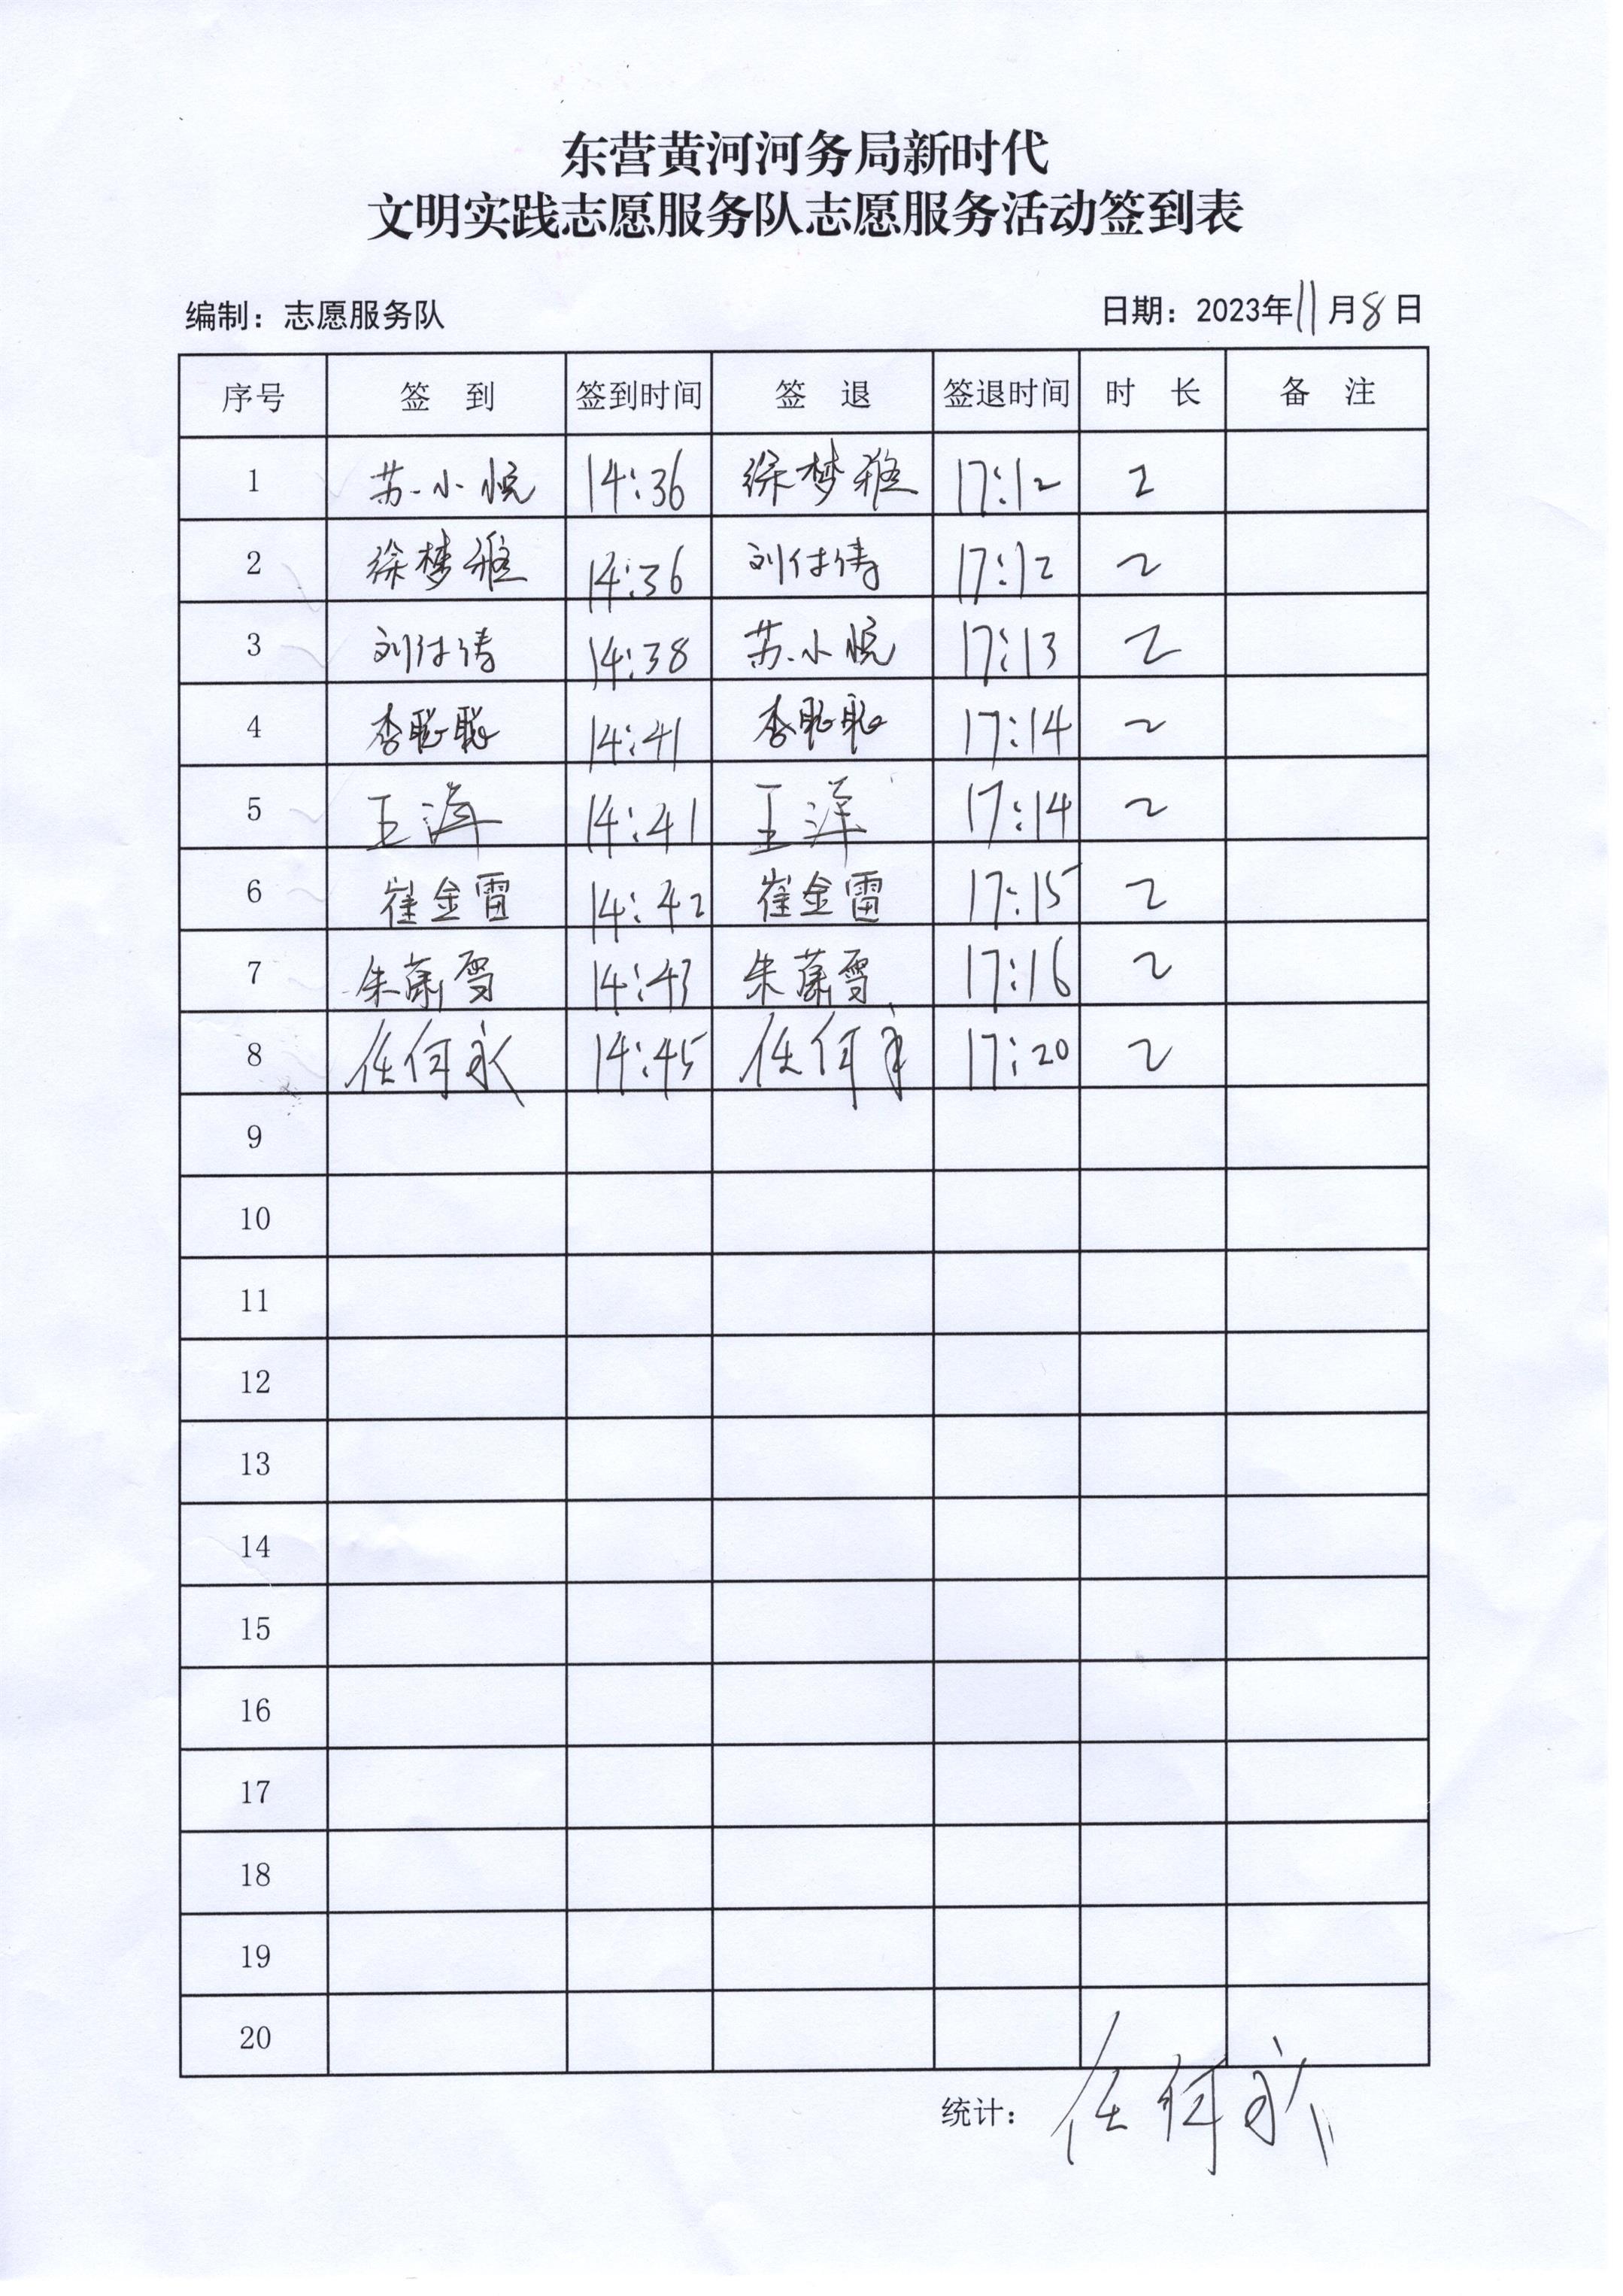 东营黄河河务局新时代
文明实践志愿服务队志愿服务活动签到表
编制：志愿服务队 日期：2023年11月8日
序号 签到 签到时间 签退 签退时间 时长 备注
1 苏小悦 14:36 徐梦雅 17:12 2
2 徐梦雅 14:36 刘付倩 17:12 2
3 刘付倩 14:38 苏小悦 17:13 2
4 李聪聪 14:41 李聪聪 17:14 2
5 王洋 14:41 王洋 17:14 2
6 崔金雷 14:42 崔金雷 17:15 2
7 朱萧雪 14:43 朱萧雪 17:16 2
8 任何永 14:45 任何永 17:20 2
9
10
11
12
13
14
15
16
17
18
19
20
统计：任何永